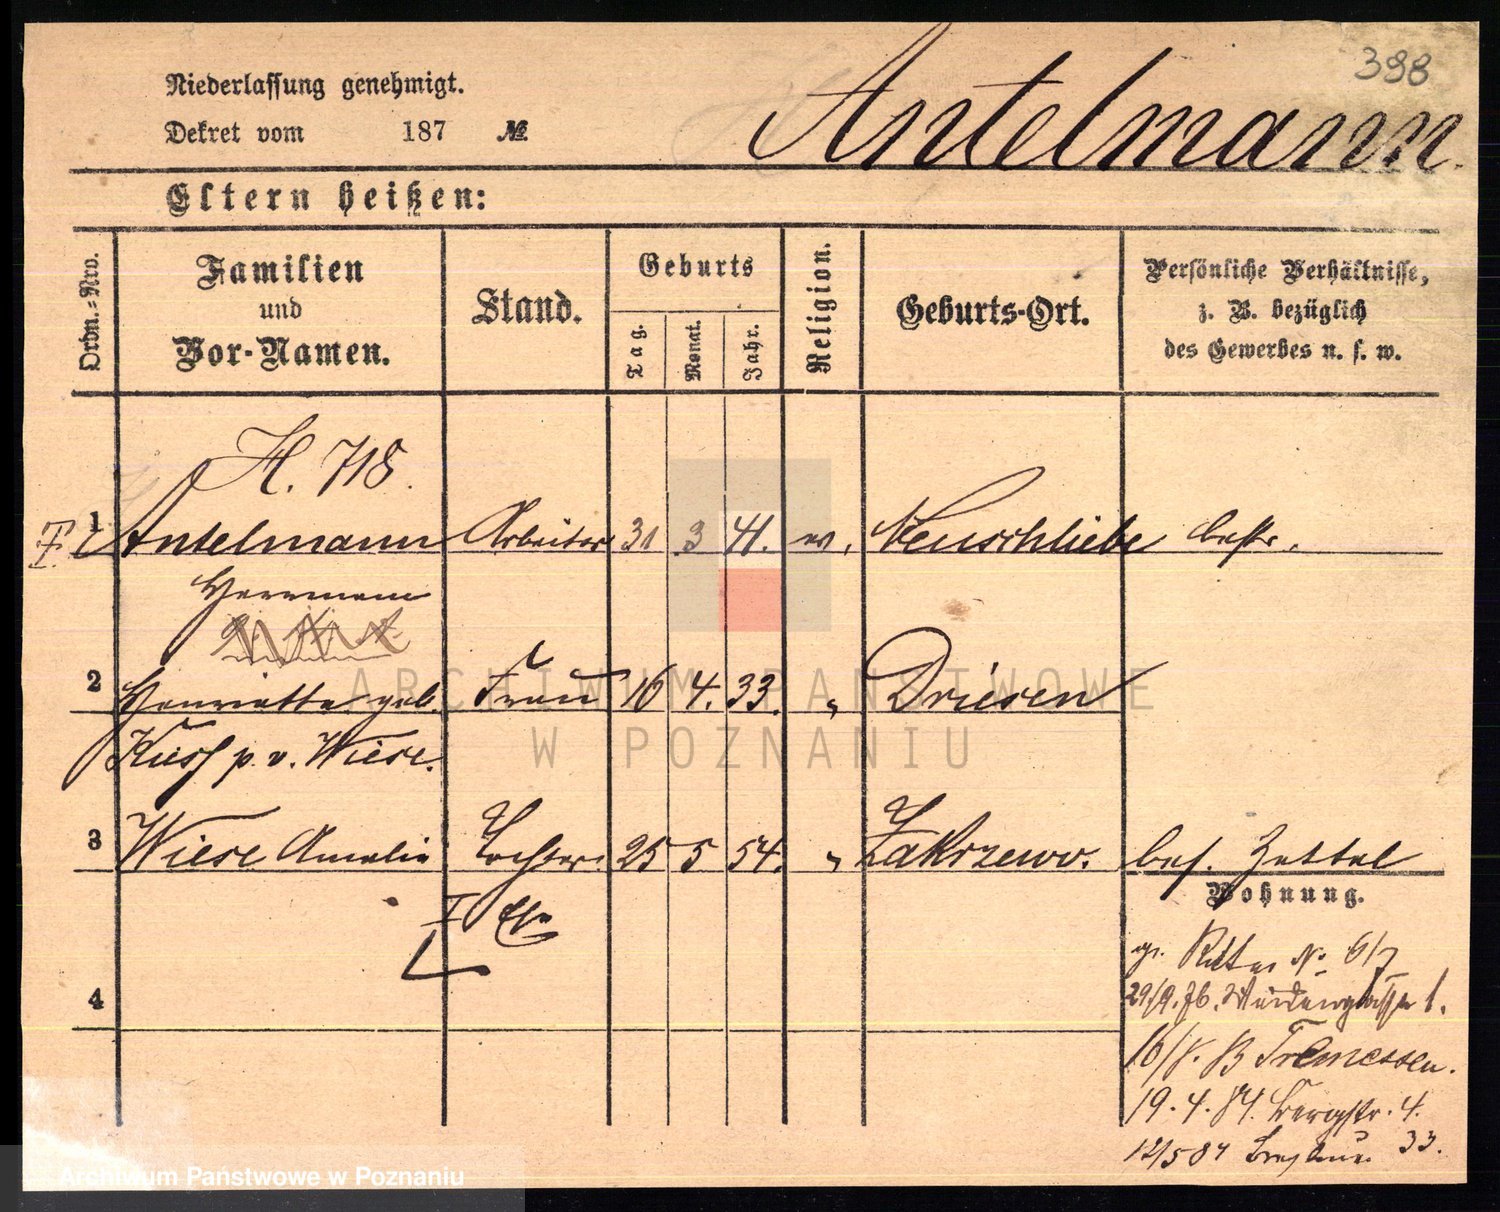 398
Niederlassung genehmigt.
Dekret vom 187 №
Antelmann.
Eltern heißen:
Ordn.-Nro.
Familien
und
Vor-Namen.
Stand.
Geburts
Tag.
Monat.
Jahr.
Religion.
Geburts-Ort.
Persönliche Verhältnisse,
z. B. bezüglich
des Gewerbes u. s. w.
H. 718.
1 Antelmann Arbeiter 31 3 41. ev. Neuschliebe bestr.
Herrmann
2 Henriette geb. Frau 16 4. 33. " Driesen
p. v. Wiese.
3 Wiese Amalie Tochter 25 5 54. " Zakrzewo. bes. Zettel
Wohnung.
gr. Ritter № 6/7
29/9. 76. 1.
4
16/ Tremessen.
19. 4. 84. Bergstr. 4.
12/5 84 33.
ARCHIWUM PAŃSTWOWE
W POZNANIU
Archiwum Państwowe w Poznaniu